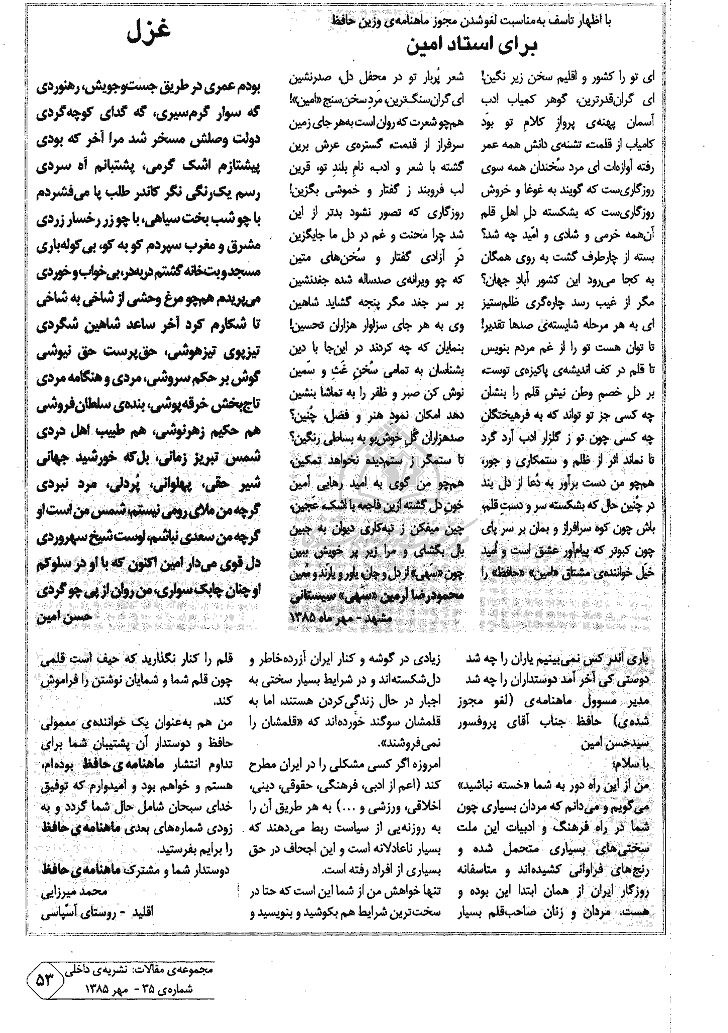 با اظهار تاسف به‌مناسبت لغوشدن مجوز ماهنامه‌ی وزین حافظ
برای استاد امین
ای تو را کشور و اقلیم سخن زیر نگین!
ای گران‌قدرترین، گوهر کمیاب ادب
آسمان پهنه‌ی پرواز کلام تو بود
کامیاب از قلمت، تشنه‌ی دانش همه عمر
رفته آوازه‌ات ای مرد سخندان همه سوی
روزگاری‌ست که گویند به غوغا و خروش
روزگاری‌ست که بشکسته دل اهل قلم
آن‌همه خرمی و شادی و امّید چه شد؟
بسته از چارطرف گشت به روی همگان
به کجا می‌رود این کشور آبادِ جهان؟
مگر از غیب رسد چاره‌گری ظلم‌ستیز
ای به هر مرحله شایسته‌ی صدها تقدیر!
تا توان هست تو را از غم مردم بنویس
تا قلم در کف اندیشه‌ی پاکیزه‌ی توست،
بر دل خصم وطن نیش قلم را بنشان
چه کسی جز تو تواند که به فرهیختگان
چه کسی چون تو ز گلزار ادب آرد گرد
تا نماند اثر از ظلم و ستمکاری و جور،
هم‌چو من دست برآور به دُعا از دل بند
در چنین حال که بشکسته سر و دستِ قلم،
باش چون کوه سرافراز و بمان بر سر پای
چون کبوتر که پیام‌آور عشق است و امید
خیل خواننده‌ی مشتاق «امین» «حافظ» را
شعر پُربار تو در محفل دل، صدرنشین
ای گران‌سنگ‌ترین، مرد سخن‌سنج «امین»!
هم‌چو شعرت که روان است به‌هر جای زمین
سرفراز از قدمت، گستره‌ی عرش برین
گشته با شعر و ادب، نام بلندِ تو، قرین
لب فروبند ز گفتار و خموشی بگزین!
روزگاری که تصور نشود بدتر از این
شد چرا محنت و غم در دل ما جایگزین
در آزادی گفتار و سخن‌های متین
که چو ویرانه‌ی صدساله شده جغدنشین
بر سر جغد مگر پنجه گشاید شاهین
وی به هر جای سزاوار هزاران تحسین!
بنمایان که چه کردند در این‌جا با دین
بشناسان به تمامی سخن غثّ و سمین
نوش کن صبر و ظفر را به تماشا بنشین
دهد امکان نمود هنر و فضل، چُنین؟
صدهزاران گل خوش‌بو به بساطی رنگین؟
تا ستمگر ز ستم‌دیده نخواهد تمکین،
هم‌چو من گوی به امید رهایی آمین
خون دل گشته ازین فاجعه با اشک، عجین،
چین میفکن ز تبه‌کاری دیوان به جبین
بال بگشای و مرا زیر پر خویش ببین
چون «سُهی» از دل و جان، یاور و یارند و مُعین
محمودرضا آرمین «سُهی» سیستانی
مشهد - مهر ماه ۱۳۸۵
غزل
بودم عمری در طریق جست‌وجویش، رهنوردی
گه سوار گرم‌سیری، گه گدای کوچه‌گردی
دولت وصلش مسخر شد مرا آخر که بودی
پیشتازم اشک گرمی، پشتبانم آه سردی
رسم یک‌رنگی نگر کاندر طلب پا می‌فشردم
با چو شب بخت سیاهی، با چو زر رخسار زردی
مشرق و مغرب سپردم کو به کو، بی‌کوله‌باری
مسجد و بت‌خانه گشتم دربه‌در، بی‌خواب و خوردی
می‌پریدم هم‌چو مرغ وحشی از شاخی به شاخی
تا شکارم کرد آخر ساعد شاهین شگردی
تیزپوی تیزهوشی، حق‌پرست حق نیوشی
گوش بر حکم سروشی، مردی و هنگامه مردی
تاج‌بخش خرقه‌پوشی، بنده‌ی سلطان‌فروشی
هم حکیم زهرنوشی، هم طبیب اهل دردی
شمس تبریز زمانی، بل‌که خورشید جهانی
شیر حقی، پهلوانی، پُردلی، مرد نبردی
گرچه من ملای رومی نیستم، شمس من است او
گرچه من سعدی نباشم، اوست شیخ سهروردی
دل قوی می‌دار امین اکنون که با او در سلوکم
او چنان چابک سواری، من روان از پی چو گردی
حسن امین
یاری اندر کس نمی‌بینیم یاران را چه شد
دوستی کی آخر آمد دوستداران را چه شد
مدیر مسوول ماهنامه‌ی (لغو مجوز
شده‌ی) حافظ جناب آقای پروفسور
سیدحسن امین
با سلام؛
من از این راه دور به شما «خسته نباشید»
می‌گویم و می‌دانم که مردان بسیاری چون
شما در راه فرهنگ و ادبیات این ملت
سختی‌های بسیاری متحمل شده و
رنج‌های فراوانی کشیده‌اند و متاسفانه
روزگار ایران از همان ابتدا این بوده و
هست. مردان و زنان صاحب‌قلم بسیار
زیادی در گوشه و کنار ایران آزرده‌خاطر و
دل‌شکسته‌اند و در شرایط بسیار سختی به
اجبار در حال زندگی‌کردن هستند، اما به
قلمشان سوگند خورده‌اند که «قلمشان را
نمی‌فروشند».
امروزه اگر کسی مشکلی را در ایران مطرح
کند (اعم از ادبی، فرهنگی، حقوقی، دینی،
اخلاقی، ورزشی و ...) به هر طریق آن را
به روزنه‌یی از سیاست ربط می‌دهند که
بسیار ناعادلانه است و این اجحاف در حق
بسیاری از افراد رفته است.
تنها خواهش من از شما این است که حتا در
سخت‌ترین شرایط هم بکوشید و بنویسید و
قلم را کنار نگذارید که حیف است قلمی
چون قلم شما و شمایان نوشتن را فراموش
کند.
من هم به‌عنوان یک خواننده‌ی معمولی
حافظ و دوستدار آن پشتیبان شما برای
تداوم انتشار ماهنامه‌ی حافظ بوده‌ام،
هستم و خواهم بود و امیدوارم که توفیق
خدای سبحان شامل حال شما گردد و به
زودی شماره‌های بعدی ماهنامه‌ی حافظ
را برایم بفرستید.
دوستدار شما و مشترک ماهنامه‌ی حافظ
محمد میرزایی
اقلید - روستای آسپاس
مجموعه‌ی مقالات: نشریه‌ی داخلی
شماره‌ی ۳۵ - مهر ۱۳۸۵
۵۳